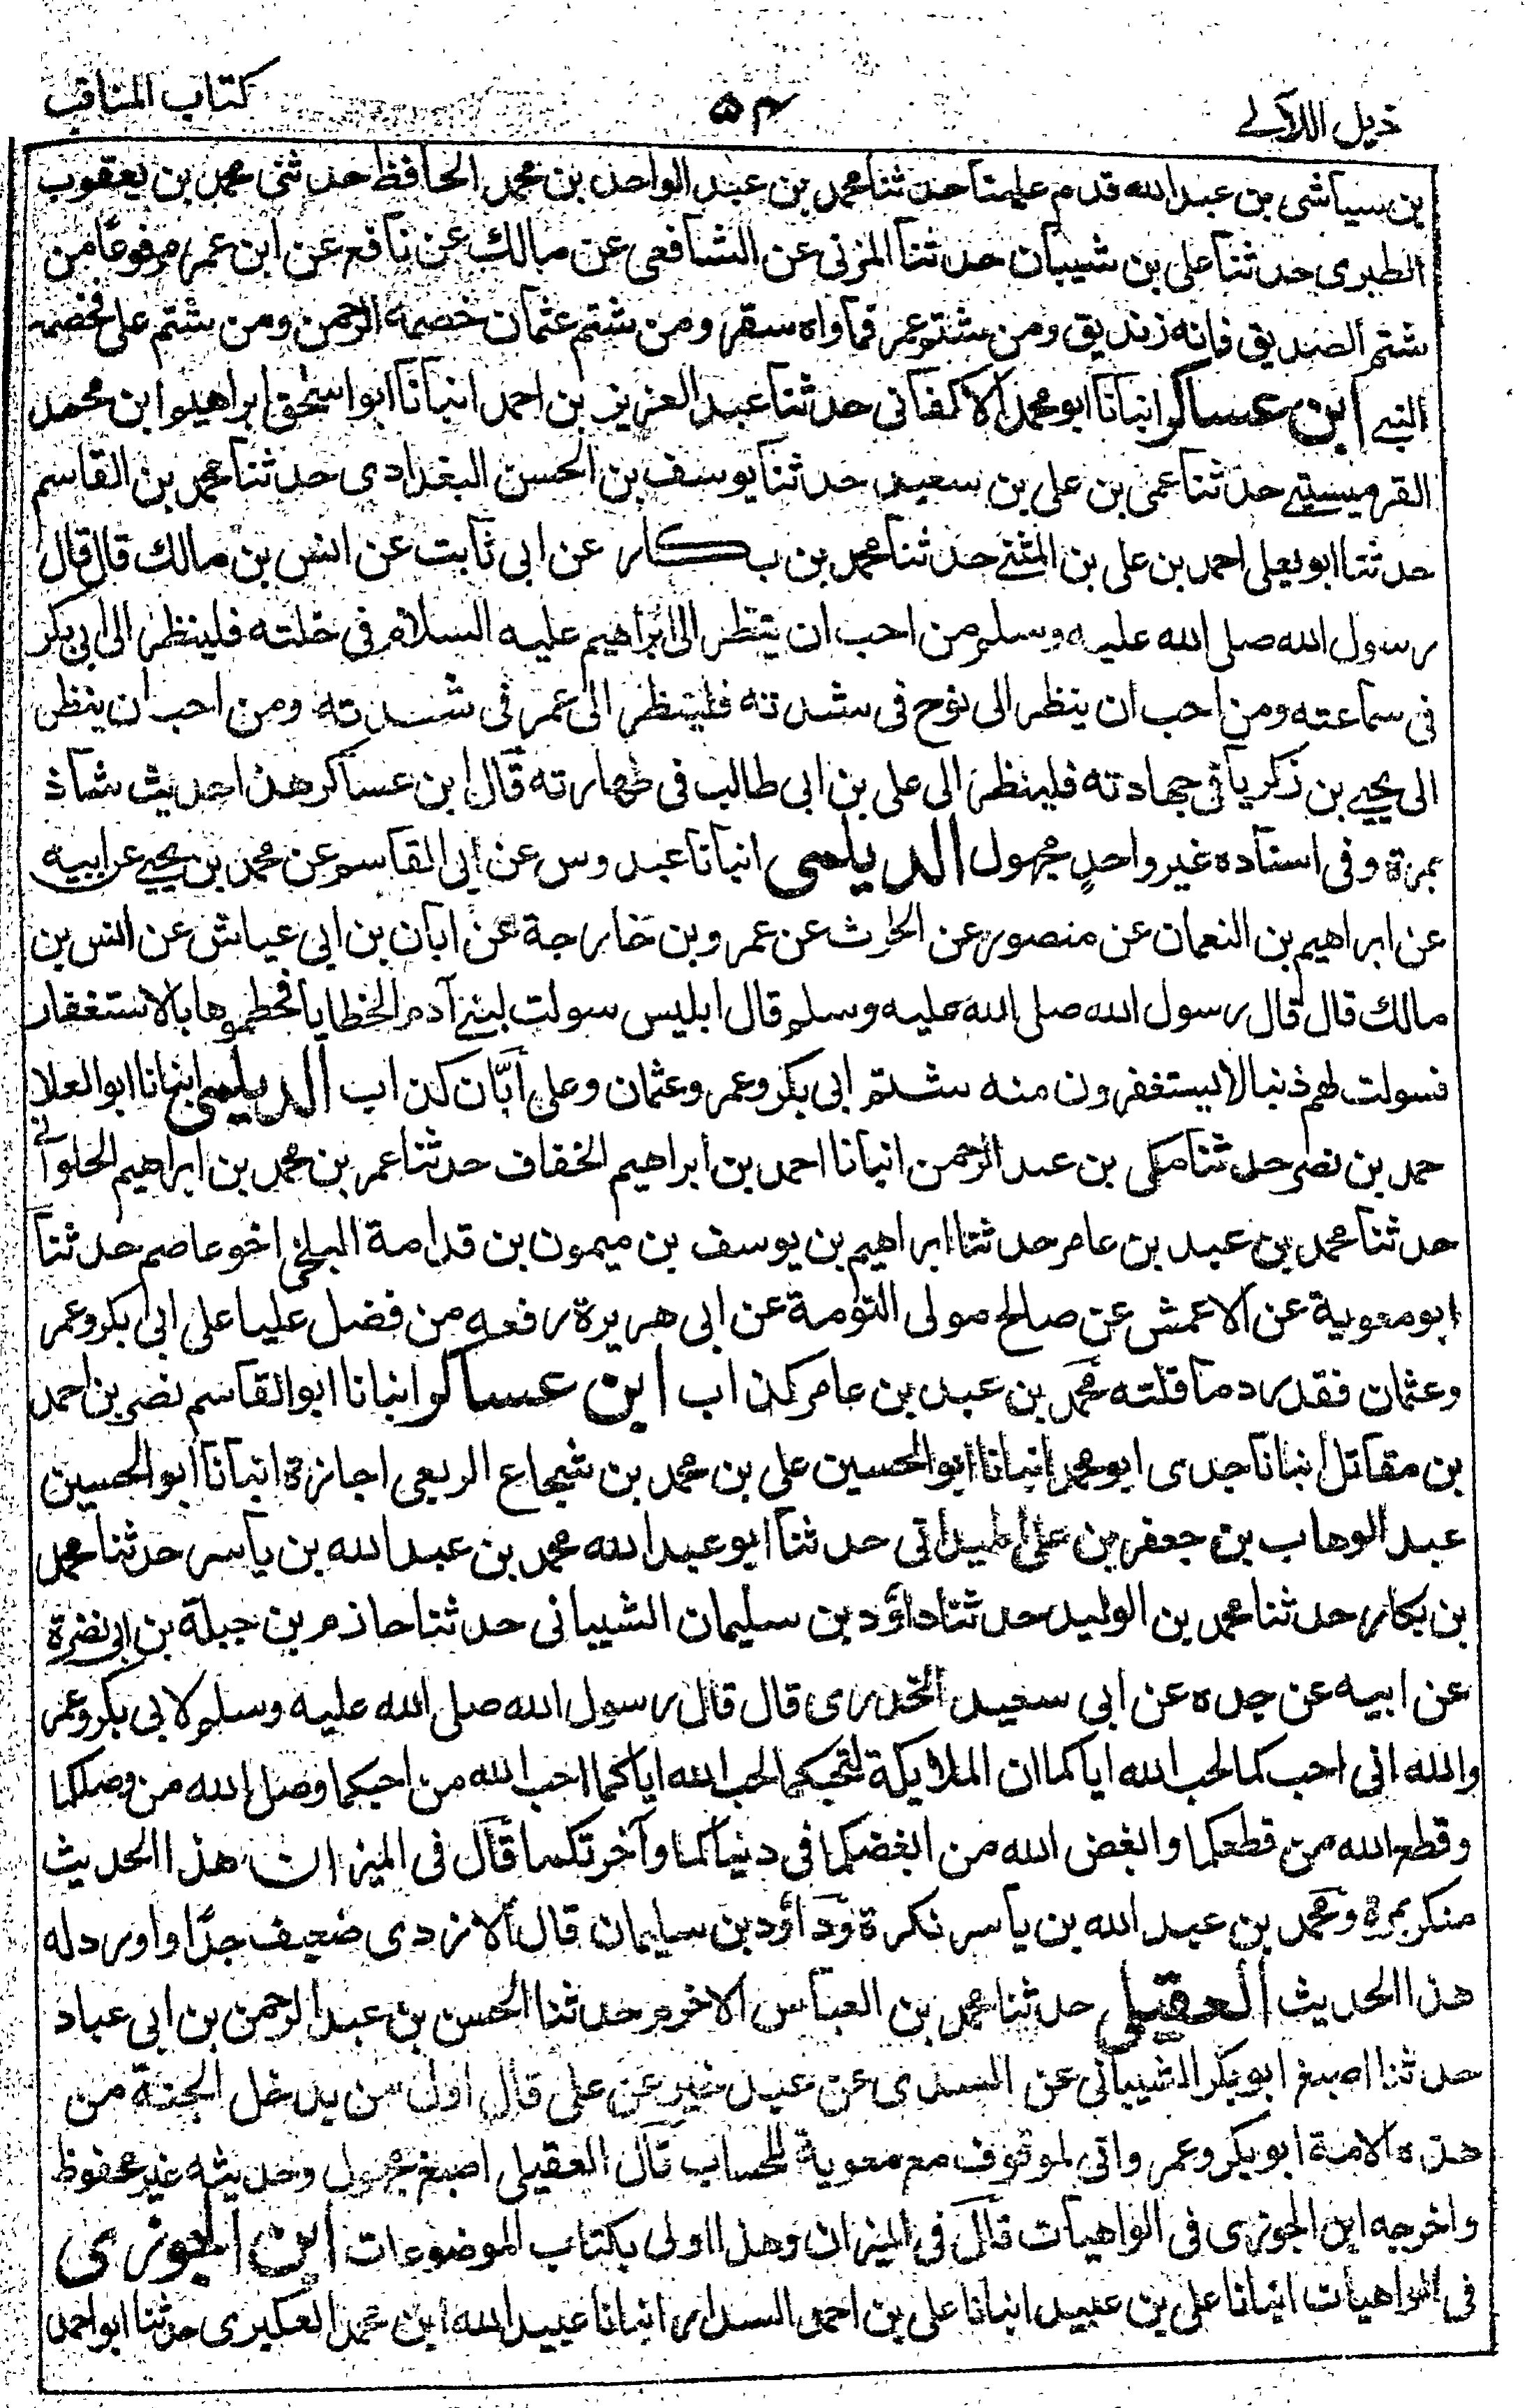 ذيل اللآلے ۵۴ كتاب المناقب
بن سياشى بن عبد الله قدم علينا حدثنا محمد بن عبد الواحد بن محمد الحافظ حدثنى محمد بن يعقوب
الطبرى حدثنا على بن شيبان حدثنا المزنى عن الشافعى عن مالك عن نافع عن ابن عمر مرفوعًا من
شتم الصديق فانه زنديق ومن شتم عمر فماواه سقر ومن شتم عثمان خصمه الرحمن ومن شتم على فخصمه
النبے ابن عساكر انبانا ابو محمد الاكفانى حدثنا عبد العزيز بن احمد انبانا ابو اسحق ابراهيم ابن محمد
القرميسينے حدثنا عمى بن على بن سعيد حدثنا يوسف بن الحسن البغدادى حدثنا محمد بن القاسم
حدثنا ابو يعلى احمد بن على بن المثنے حدثنا محمد بن بكار عن ابى ثابت عن انس بن مالك قال قال
رسول الله صلى الله عليه وسلم من احب ان ينظر الى ابراهيم عليه السلام فى خلته فلينظر الى ابى بكر
فى سماعته ومن احب ان ينظر الى نوح فى شدته فلينظر الى عمر فى شدته ومن احب ان ينظر
الى يحيے بن زكريا فى جهادته فلينظر الى على بن ابى طالب فى طهارته قال ابن عساكر هذا حديث شاذ
بمرة وفى اسناده غير واحدٍ مجهول الديلمى انبانا عبدوس عن ابى القاسم عن محمد بن يحيے عن ابيه
عن ابراهيم بن النعمان عن منصور عن الحرث عن عمرو بن خارجة عن ابان بن ابى عياش عن انس بن
مالك قال قال رسول الله صلى الله عليه وسلم قال ابليس سولت لبنے آدم الخطايا فحطموها بالاستغفار
فسولت لهم ذنبا لا يستغفرون منه شتم ابى بكر وعمر وعثمان وعلى أبّان كذاب الديلمى انبانا ابو العلا
حمد بن نصر حدثنا مكى بن عبد الرحمن انبانا احمد بن ابراهيم الخفاف حدثنا عمر بن محمد بن ابراهيم الحلوانے
حدثنا محمد بن عبد بن عامر حدثنا ابراهيم بن يوسف بن ميمون بن قدامة البلخى اخو عاصم حدثنا
ابو معوية عن الاعمش عن صالح مولى التؤمة عن ابى هريرة رفعه من فضل عليا على ابى بكر وعمر
وعثمان فقد رد ما قلته محمد بن عبد بن عامر كذاب ابن عساكر انبانا ابو القاسم نصر بن احمد
بن مقاتل انبانا جدى ابو محمد انبانا ابو الحسين على بن محمد بن شجاع الربعى اجازة انبانا ابو الحسين
عبد الوهاب بن جعفر بن على الميدانى حدثنا ابو عبد الله محمد بن عبد الله بن ياسر حدثنا محمد
بن بكار حدثنا محمد بن الوليد حدثنا داؤد بن سليمان الشيبانى حدثنا حازم بن جبلة بن ابى نضرة
عن ابيه عن جده عن ابى سعيد الخدرى قال قال رسول الله صلى الله عليه وسلم لابى بكر وعمر
والله انى احبكما لحب الله اياكما ان الملايكة لتحبكما لحب الله اياكما احب الله من احبكما وصل الله من وصلكما
وقطع الله من قطعكما وابغض الله من ابغضكما فى دنياكما وآخرتكما قال فى الميزان هذا الحديث
منكر بمرة ومحمد بن عبد الله بن ياسر نكرة وداؤد بن سليمان قال الازدى ضعيف جدًا واورد له
هذا الحديث العقيلى حدثنا محمد بن العباس الاخرم حدثنا الحسن بن عبد الرحمن بن ابى عباد
حدثنا اصبغ ابو بكر الشيبانى عن السدى عن عبد خير عن على قال اول من يدخل الجنة من
هذه الامة ابو بكر وعمر وانى لموقوف مع معوية للحساب قال العقيلى اصبغ مجهول وحديثه غير محفوظ
واخرجه ابن الجوزى فى الواهيات قال فى الميزان وهذا اولى بكتاب الموضوعات ابن الجوزى
فى الواهيات انبانا على بن عبيد انبانا على بن احمد السدار انبانا عبيد الله ابن محمد العكبرى حدثنا ابو احمد